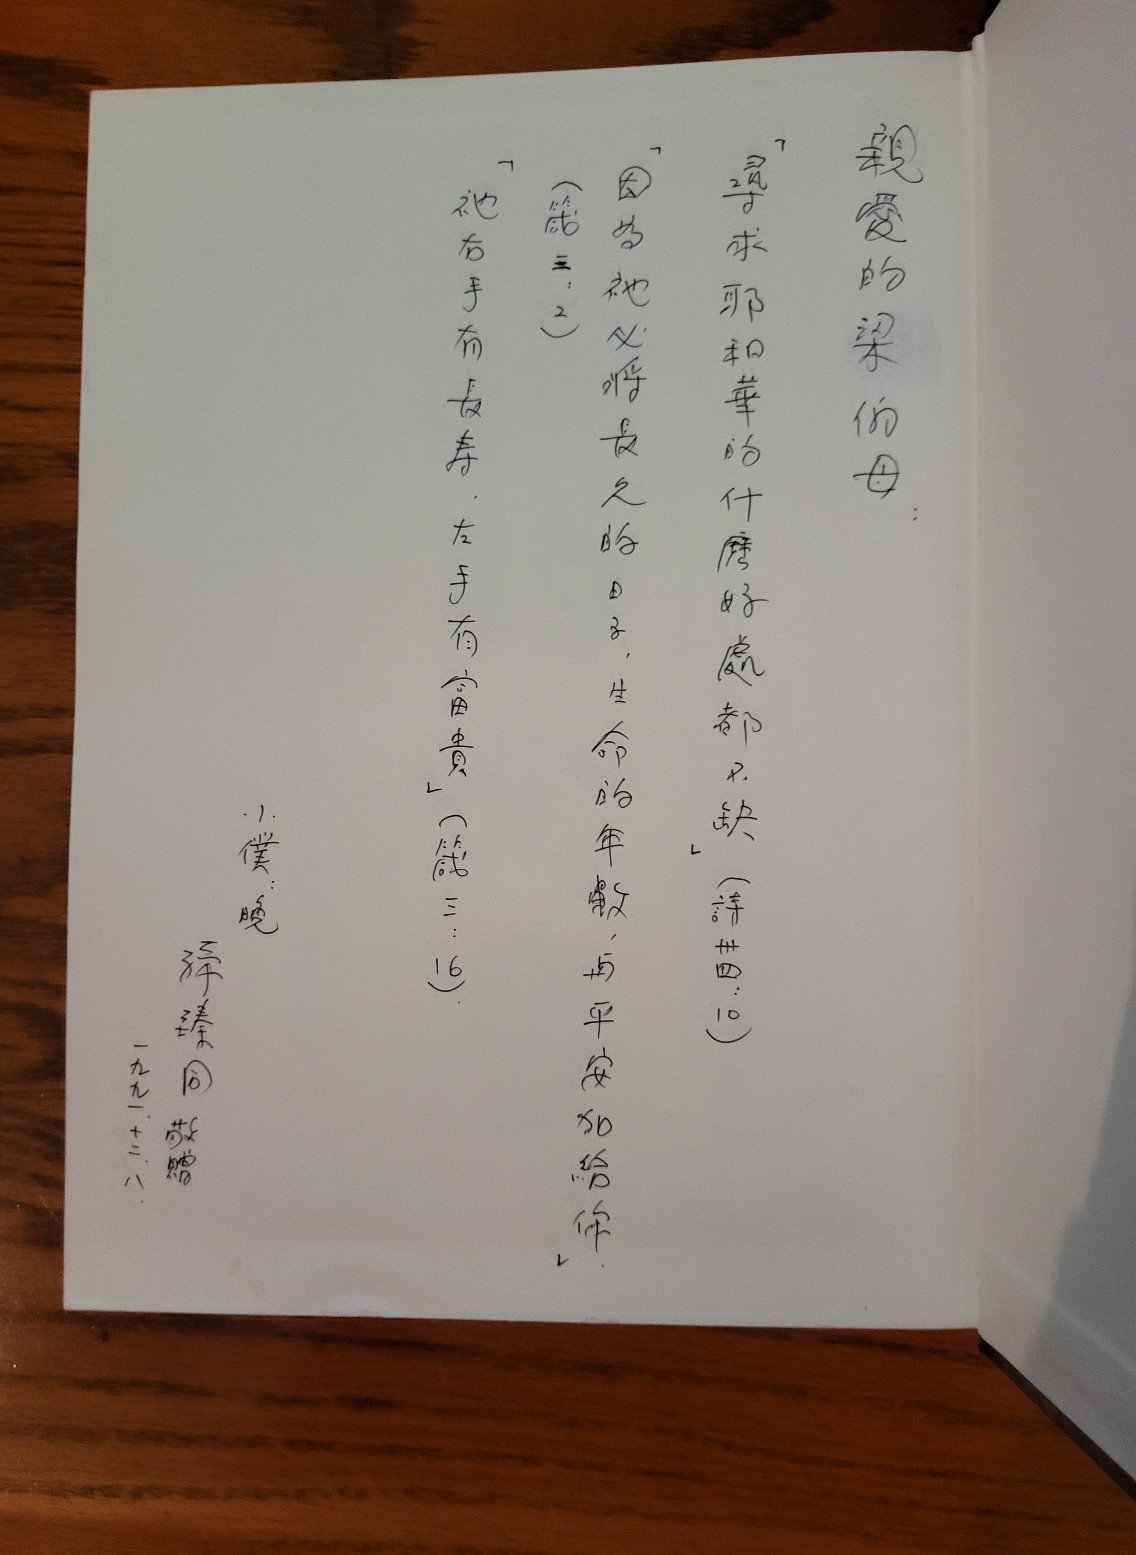 親愛的梁伯母：
「尋求耶和華的什麼好處都不缺」（詩卅四：10）
「因為祂必將長久的日子，生命的年數，与平安加給你.」
（箴三：2）
「祂右手有長寿，左手有富貴」（箴三：16）.
小僕：曉
臻同敬贈
一九九一.十二.八.